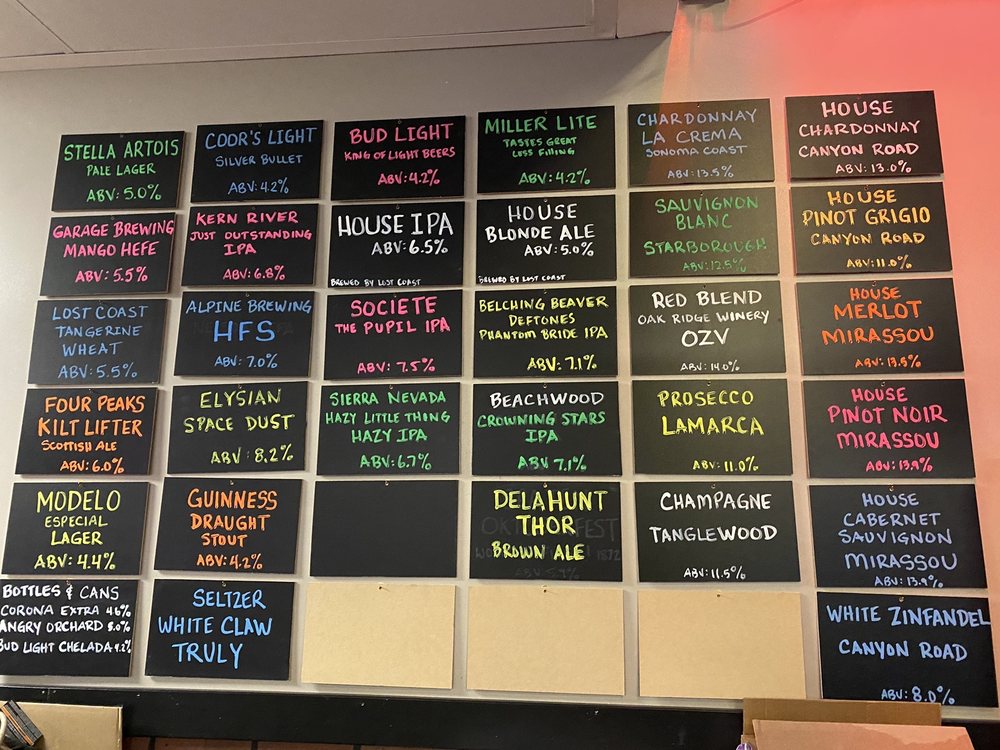 STELLA ARTOIS
PALE LAGER
ABV: 5.0%
COOR'S LIGHT
SILVER BULLET
ABV: 4.2%
BUD LIGHT
KING OF LIGHT BEERS
ABV: 4.2%
MILLER LITE
TASTES GREAT
LESS FILLING
ABV: 4.2%
CHARDONNAY
LA CREMA
SONOMA COAST
ABV: 13.5%
HOUSE
CHARDONNAY
CANYON ROAD
ABV: 13.0%
GARAGE BREWING
MANGO HEFE
ABV: 5.5%
KERN RIVER
JUST OUTSTANDING
IPA
ABV: 6.8%
HOUSE IPA
ABV: 6.5%
BREWED BY LOST COAST
HOUSE
BLONDE ALE
ABV: 5.0%
BREWED BY LOST COAST
SAUVIGNON
BLANC
STARBOROUGH
ABV: 12.5%
HOUSE
PINOT GRIGIO
CANYON ROAD
ABV: 11.0%
LOST COAST
TANGERINE
WHEAT
ABV: 5.5%
ALPINE BREWING
HFS
ABV: 7.0%
SOCIETE
THE PUPIL IPA
ABV: 7.5%
BELCHING BEAVER
DEFTONES
PHANTOM BRIDE IPA
ABV: 7.1%
RED BLEND
OAK RIDGE WINERY
OZV
ABV: 14.0%
HOUSE
MERLOT
MIRASSOU
ABV: 13.5%
FOUR PEAKS
KILT LIFTER
SCOTTISH ALE
ABV: 6.0%
ELYSIAN
SPACE DUST
ABV: 8.2%
SIERRA NEVADA
HAZY LITTLE THING
HAZY IPA
ABV: 6.7%
BEACHWOOD
CROWNING STARS
IPA
ABV 7.1%
PROSECCO
LAMARCA
ABV: 11.0%
HOUSE
PINOT NOIR
MIRASSOU
ABV: 13.9%
MODELO
ESPECIAL
LAGER
ABV: 4.4%
GUINNESS
DRAUGHT
STOUT
ABV: 4.2%
DELAHUNT
THOR
BROWN ALE
CHAMPAGNE
TANGLEWOOD
ABV: 11.5%
HOUSE
CABERNET
SAUVIGNON
MIRASSOU
ABV: 13.9%
BOTTLES & CANS
CORONA EXTRA 4.6%
ANGRY ORCHARD 5.0%
BUD LIGHT CHELADA 4.2%
SELTZER
WHITE CLAW
TRULY
WHITE ZINFANDEL
CANYON ROAD
ABV: 8.0%